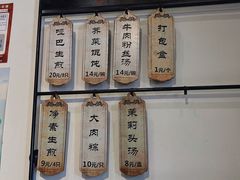 哑巴生煎
20元/8只
荠菜馄饨
14元/碗
牛肉粉丝汤
14元/碗
打包盒
1元/个
净素生煎
9元/4只
大肉粽
10元/只
茉莉头汤
8元/盅